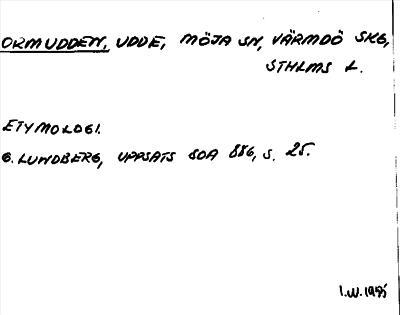 ORMUDDEN, UDDE, MÖJA SN, VÄRMDÖ SKG,
STHLMS L.
ETYMOLOGI.
G. LUNDBERG, UPPSATS SOA 886, S. 25.
I.W. 1975